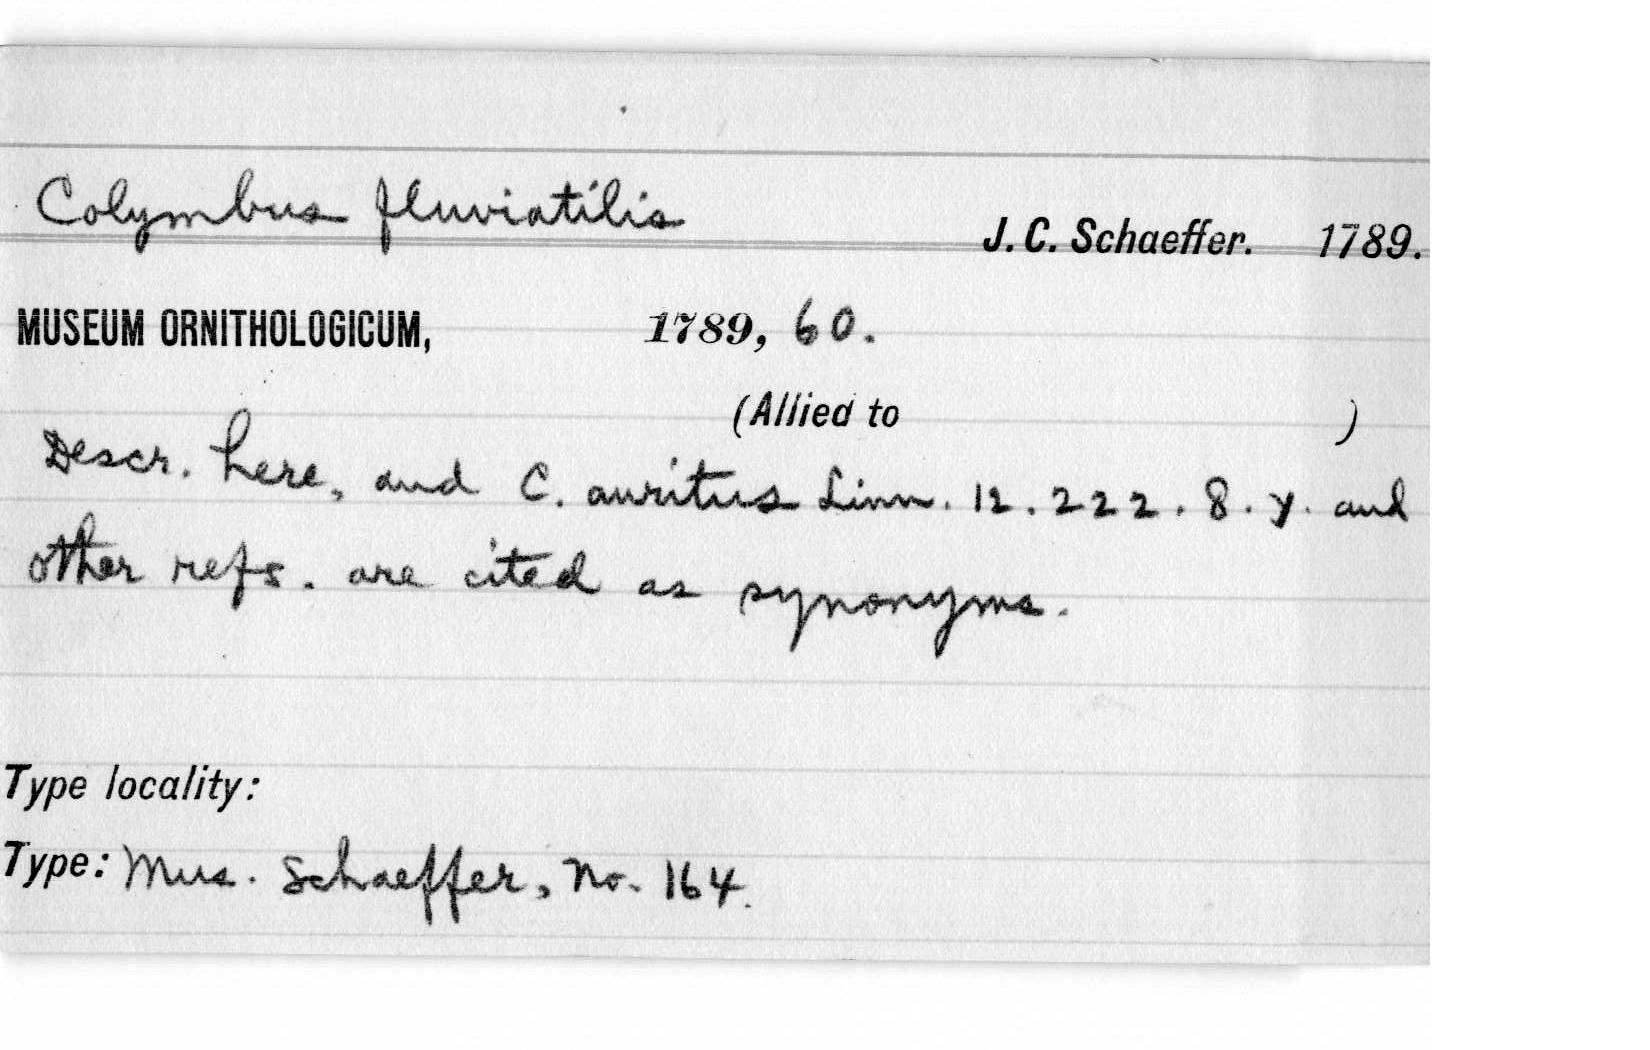 Colymbus fluviatilis J. C. Schaeffer. 1789.
MUSEUM ORNITHOLOGICUM, 1789, 60.
(Allied to )
Descr. here, and C. auritus Linn. 12. 222. 8. γ. and
other refs. are cited as synonyms.
Type locality:
Type: Mus. Schaeffer, No. 164.